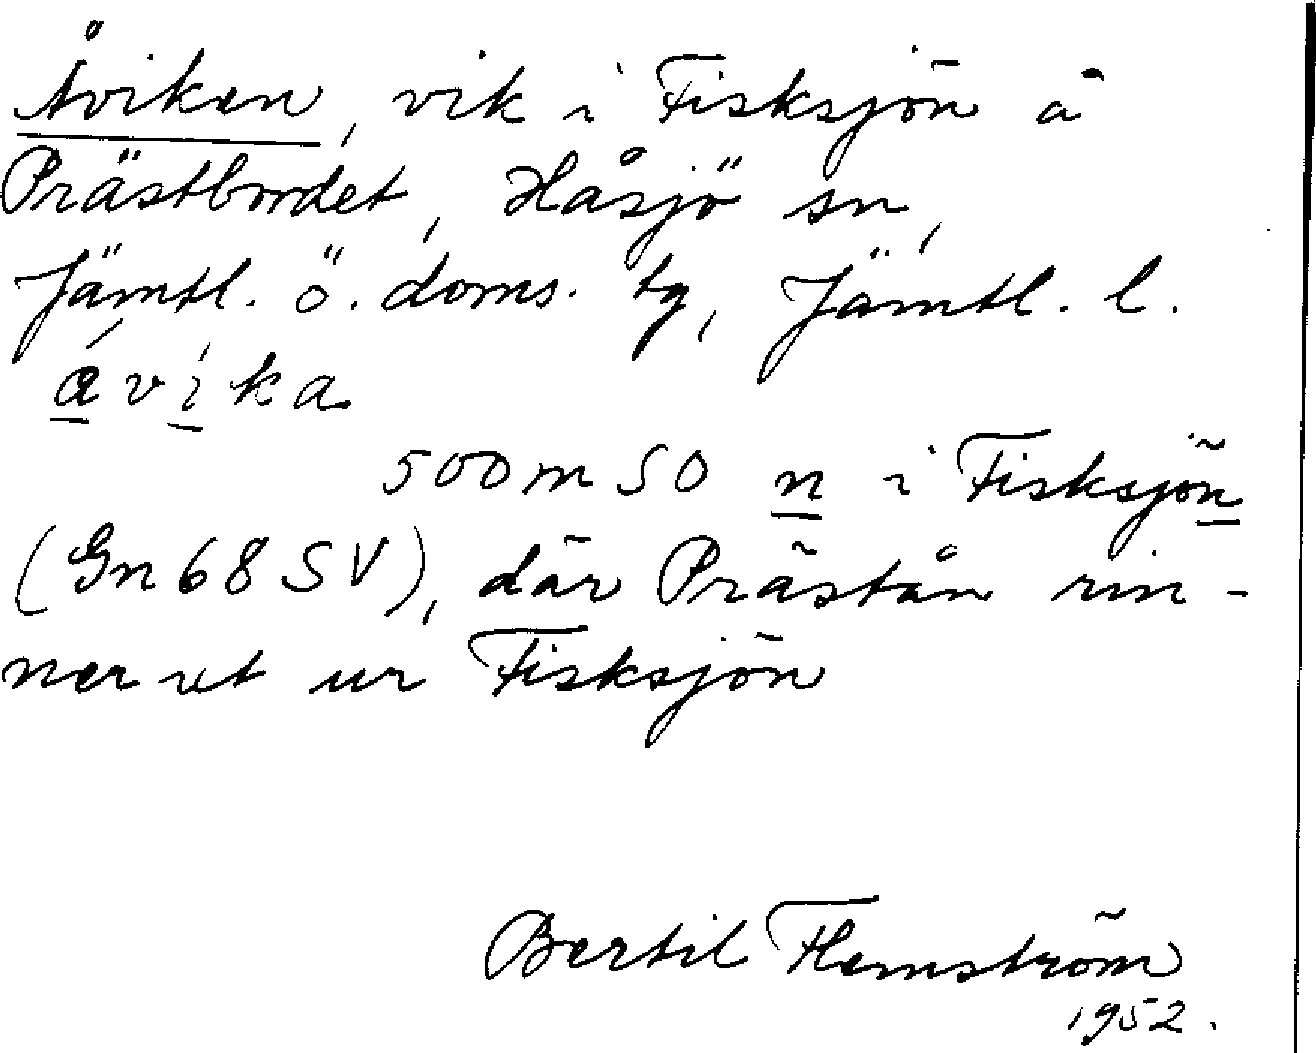 Åviken, vik i Fisksjön å
Prästbordet, Håsjö sn,
Jämtl. ö. doms. tg, Jämtl. l.
ávíka
500 m SO n i Fisksjön
(Gn 68 SV), där Prästån rin-
ner ut ur Fisksjön
Bertil Flemström
1952.